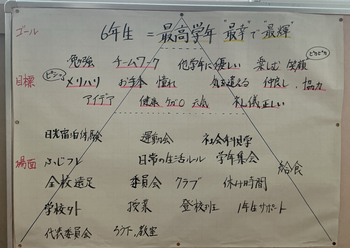 ゴール
6年生 = 最高学年 "最幸"で"最輝"
勉強 チームワーク 他学年に優しい 楽しむ 笑顔
目標
メリハリ お手本 憧れ 仲良し 協力
アイデア 健康 元気 礼儀正しい
日光宿泊体験 運動会 社会科見学
場面
ふじフレ 日常の生活ルール 学年集会
給食
全校遠足 委員会 クラブ 休み時間
学校 授業 登校班 1年生サポート
代表委員会 教室